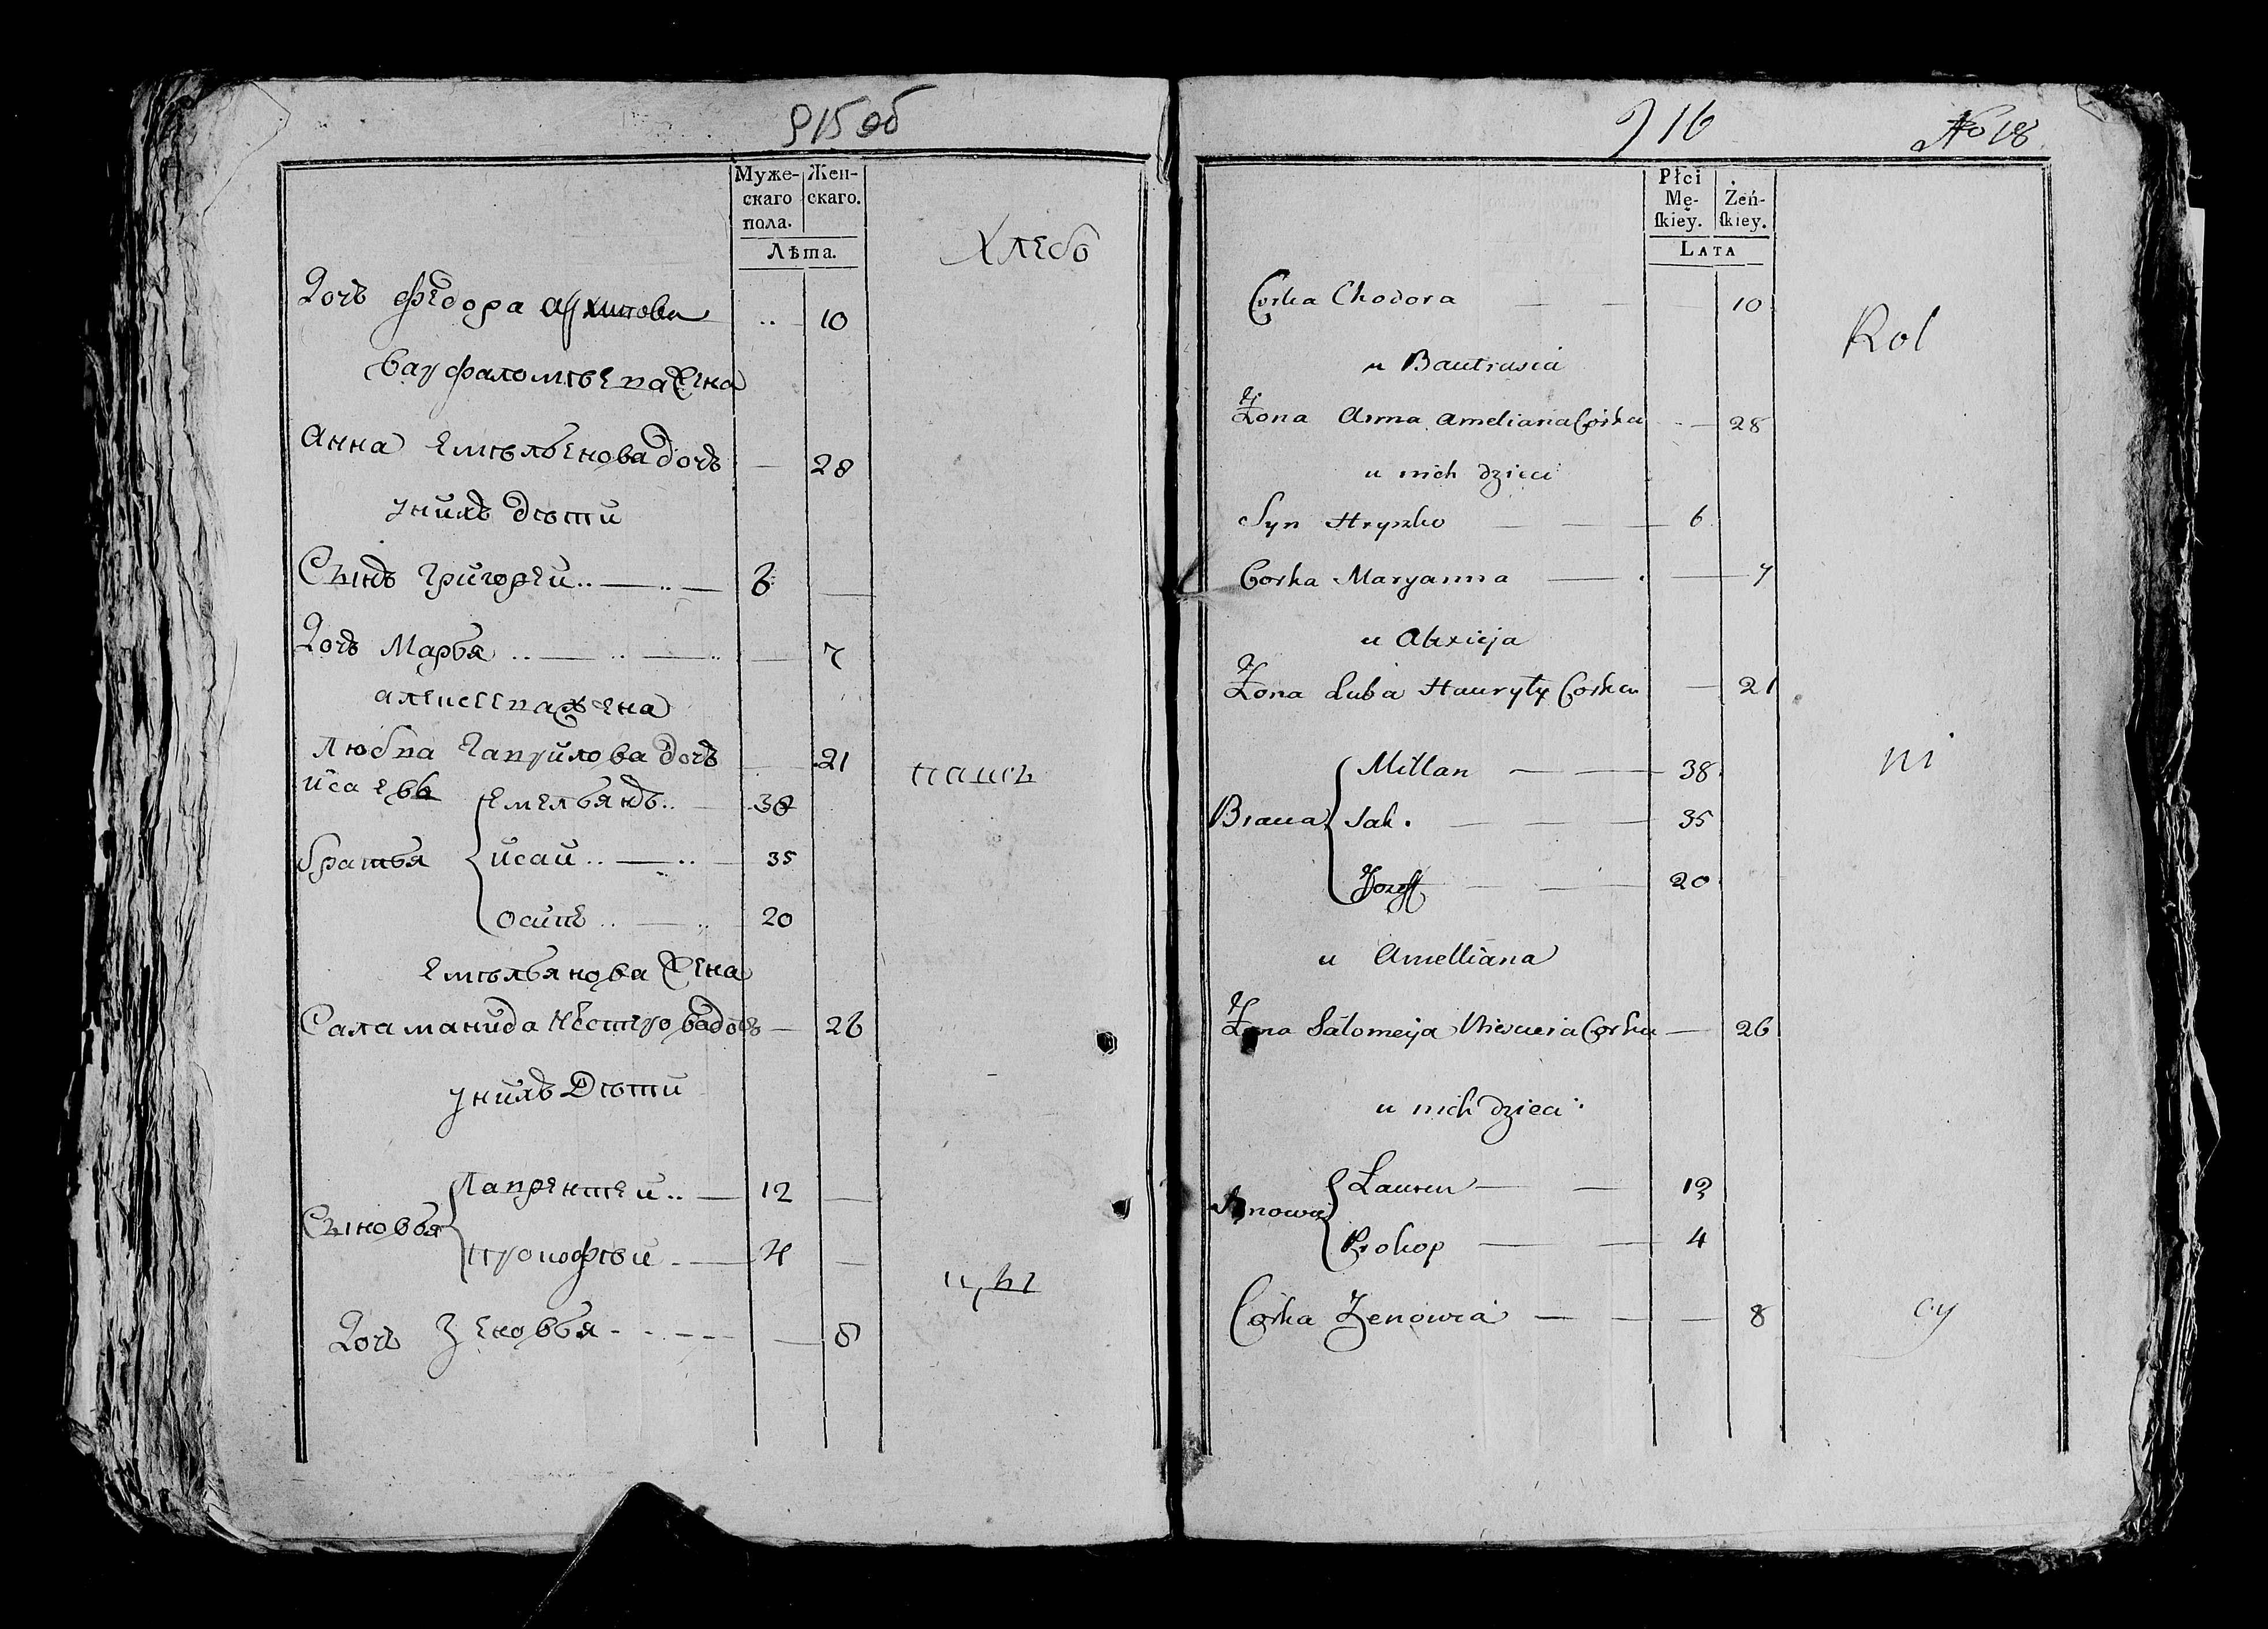 915 об
Муже-
скаго
пола.
Жен-
скаго.
Лѣта.
Хлебо
Дочь Федора Архипова .. 10
Варфаломѣева жена
Анна Емѣльенова дочь — 28
у нихъ дѣти
Сынъ Григорей .. — .. — 6
Дочь Марья .. — .. — .. — 7
алексеева жена
Любва Гаврилова дочь — 21
пашъ
Исаевы
братья
Емельянъ .. — 38
Исай .. — .. — 35
Осипъ .. — .. 20
Емѣльянова жена
Саламанида Нестерова дочь — 26
у нихъ дѣти
Сыновья
Лаврентей .. — 12
Прокофѣй .. — 4
цы
Дочь Зеновья - - - - - — 8
916
No 18
Płci
Mę-
ſkiey.
Żeń-
ſkiey.
LATA
Corka Chodora — — — 10
Rol
u Bautrusia
Żona Anna Ameliana Corka - — 28
u nich dzieci
Syn Hryszko — — — 6
Corka Maryanna — . — 7
u Alexieja
Żona Luba Hauryły Corka — 21
ni
Bracia
Millan — — 38
Jak. — — — 35
Jozeff — — 20
u Amelliana
Żona Salomeija Corka — 26
u nich dzieci:
Synowie
Lauren — — 12
Prokop — — 4
Corka Zenowia — — — 8
cy